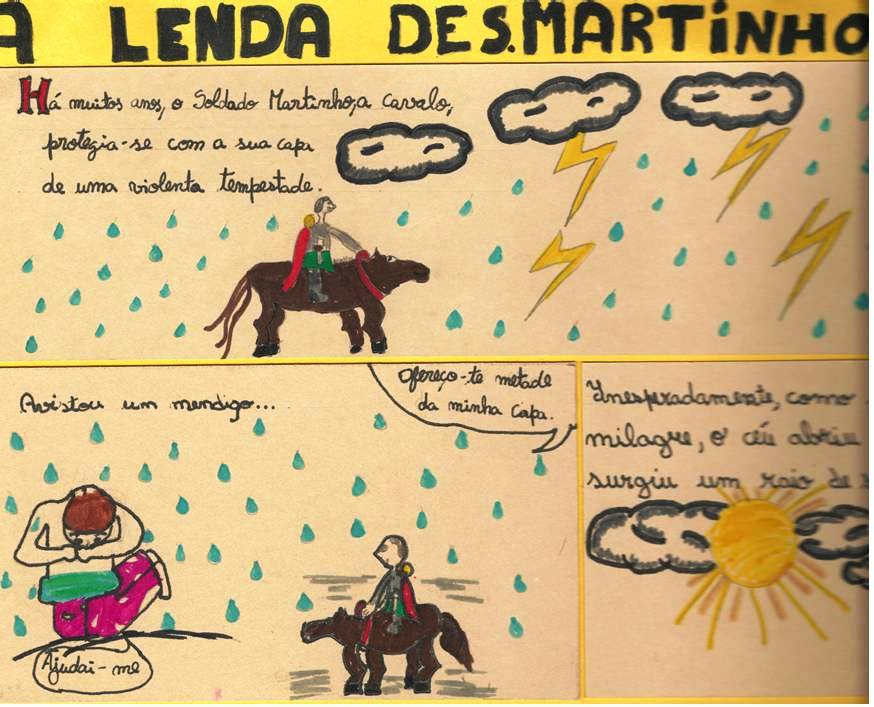 A LENDA DE S. MARTINHO
Há muitos anos, o Soldado Martinho, a cavalo,
protegia-se com a sua capa
de uma violenta tempestade.
Avistou um mendigo...
Ofereço-te metade
da minha capa.
Ajudai-me
Inesperadamente, como
milagre, o céu abriu
surgiu um raio de s